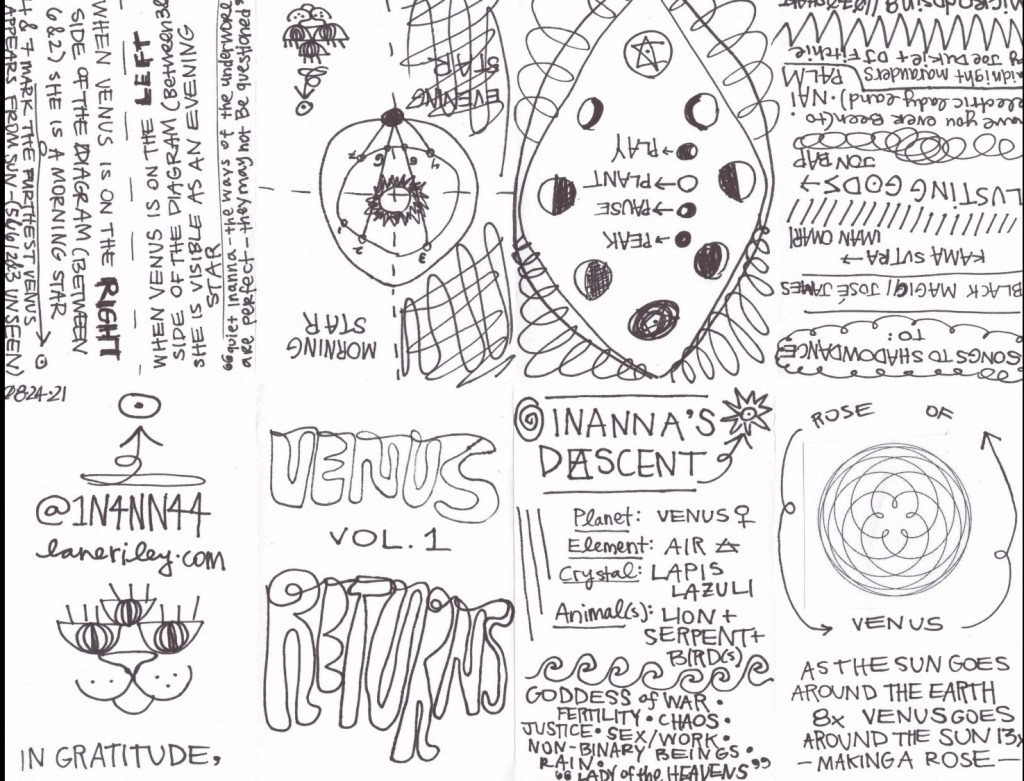 WHEN VENUS IS ON THE LEFT
SIDE OF THE DIAGRAM (BETWEEN 3&
SHE IS VISIBLE AS AN EVENING
STAR
"quiet Inanna - the ways of the underworld
are perfect - they may not be questioned"
WHEN VENUS IS ON THE RIGHT
SIDE OF THE DIAGRAM (BETWEEN
6&2) SHE IS A MORNING STAR
4 & 7 MARK THE FURTHEST VENUS
APPEARS FROM SUN -
UNSEEN)
MORNING
STAR
EVENING
STAR
PEAK
PAUSE
PLANT
PLAY
SONGS TO SHADOWDANCE
TO:
BLACK MAGIC // JOSÉ JAMES
KAMA SUTRA →
IMAN OMARI
LUSTING GODS →
JON BAP
have you ever Been (to
electric lady land) · NAI
PALM
midnight marauders
by Joe Dukie + DJ Fitchie
MICRODOSING //
08·24·21
@1N4NN44
laneriley.com
IN GRATITUDE,
VENUS
VOL. 1
RETURNS
INANNA'S
DESCENT
Planet: VENUS ♀
Element: AIR 🜁
Crystal: LAPIS
LAZULI
Animal(s): LION +
SERPENT +
BIRD(S)
GODDESS of WAR •
FERTILITY • CHAOS •
JUSTICE • SEX/WORK •
NON-BINARY BEINGS •
RAIN •
"LADY of the HEAVENS"
ROSE OF
VENUS
AS THE SUN GOES
AROUND THE EARTH
8x VENUS GOES
AROUND THE SUN 13x
- MAKING A ROSE -